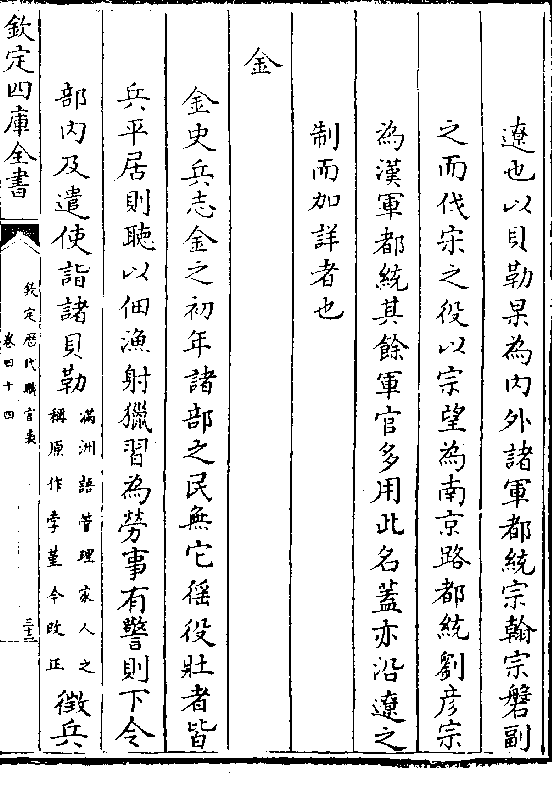 遼也以貝勒杲為内外諸軍都統宗翰宗磐副
之而伐宋之役以宗望為南京路都統劉彦宗
為漢軍都統其餘軍官多用此名蓋亦沿遼之
制而加詳者也
金
金史兵志金之初年諸部之民無它徭役壯者皆
兵平居則聽以佃漁射獵習為勞事有警則下令
部内及遣使詣諸貝勒
滿洲語管理家人之
稱原作孛菫今改正
徴兵
欽定四庫全書
欽定歷代職官表
卷四十四
三十三